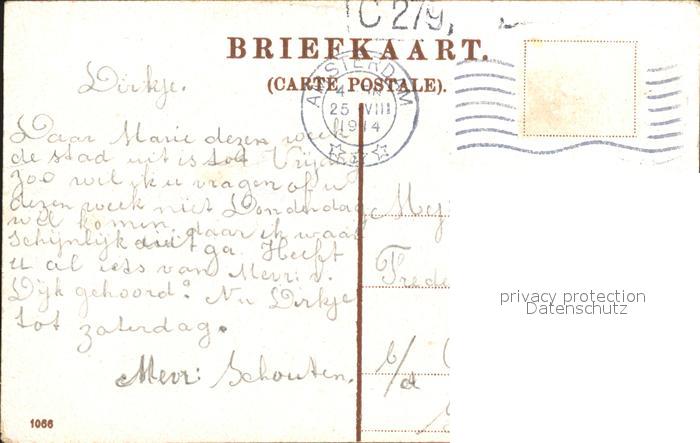 C 279,
BRIEFKAART.
(CARTE POSTALE).
AMSTERDAM
4
25 VIII
1914
Dirkje.
Daar Marie dezen week
de stad uit is tot Vrijdag
zoo wil ik u vragen of u
dezen week niet Donderdag
wil komen, daar ik waar
schijnlijk uit ga. Heeft
u al iets van Mevr: v.
Dijk gehoord? Nu Dirkje
tot zaterdag.
Mevr: Schouten.
Mej
Frede
b/d
privacy protection
Datenschutz
1066